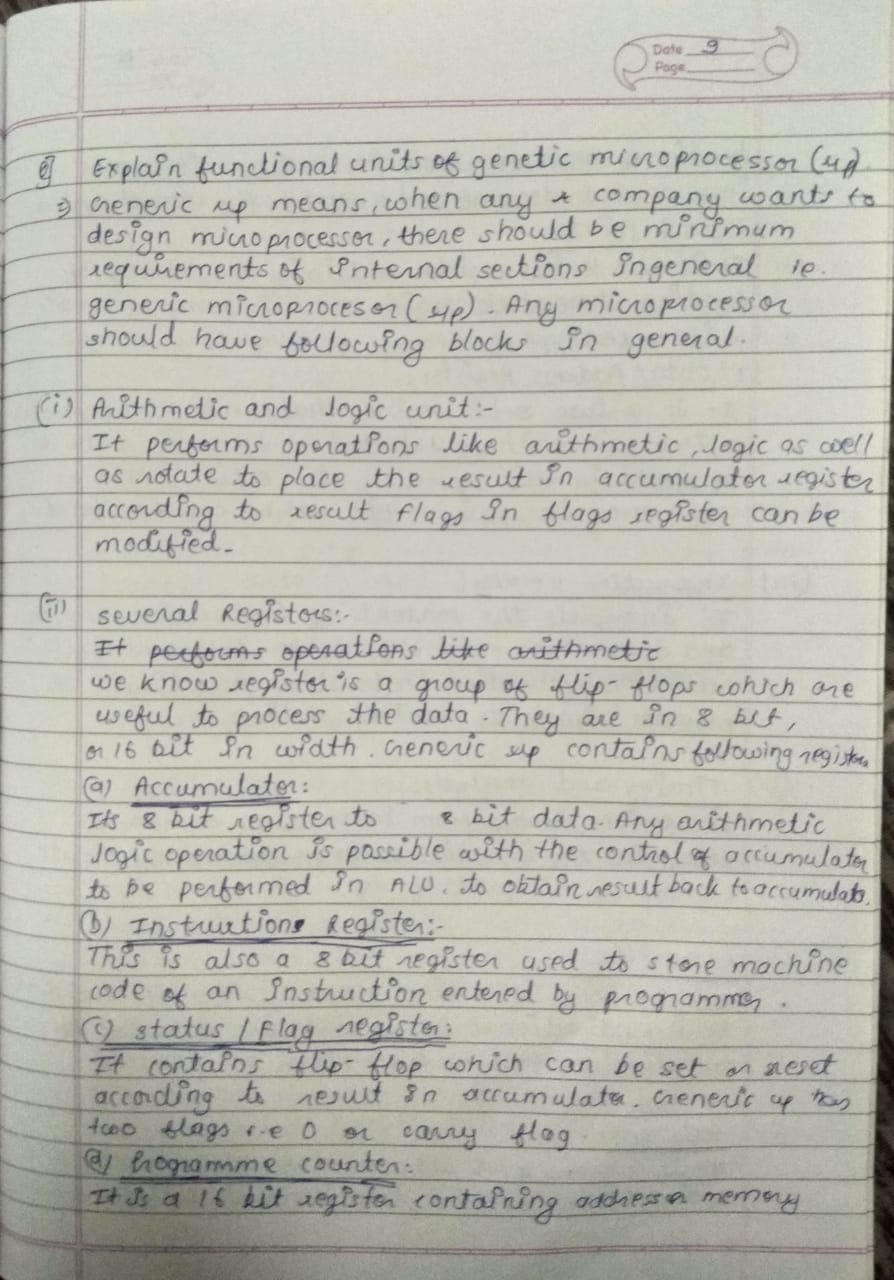 Date 9
Page
e] Explain functional units of genetic microprocessor (up)
⇒ Generic up means, when any company wants to
design microprocessor, there should be minimum
requirements of internal sections ingeneral ie.
generic microprocesor (up). Any microprocessor
should have following blocks in general.
(i) Arithmetic and logic unit:-
It performs operations like arithmetic, logic as well
as rotate to place the result in accumulator register
according to result flags in flags register can be
modified.
several Registors:-
It performs operations like arithmetic
we know register is a group of flip-flops which are
useful to process the data. They are in 8 bit,
or 16 bit in width. Generic up contains following
(a) Accumulator:
Its 8 bit register to 8 bit data. Any arithmetic
logic operation is possible with the control of accumulator
to be performed in ALU. to obtain result back to
(b) Instructions Register:-
This is also a 8 bit register used to store machine
code of an instruction entered by programmer.
(c) status / Flag register:
It contains flip-flop which can be set or reset
according to result in accumulator. Generic up has
two flags i.e 0 or carry flag
(d) Programme counter:
It is a 16 bit register containing address memory